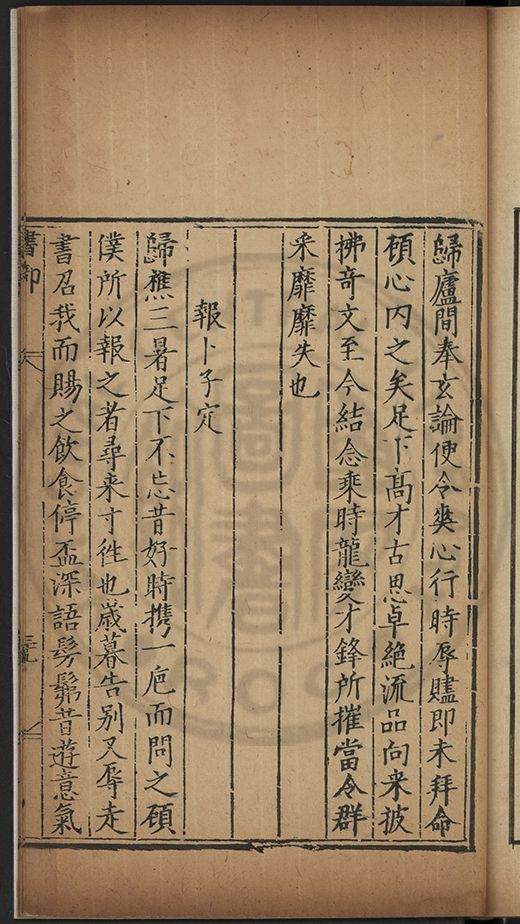 歸廬間奉玄論使令爽心行時辱贐即未拜命
頋心内之矣足下髙才古思卓絶流品向来披
拂奇文至今結念乗時龍變才鋒所摧當令群
釆靡靡失也
報卜子定
歸樵三暑足下不忘昔好時携一巵而問之頋
僕所以報之者尋来寸徃也歳暮告别又辱走
書召我而賜之飲食停盃深語髣髴昔遊意氣